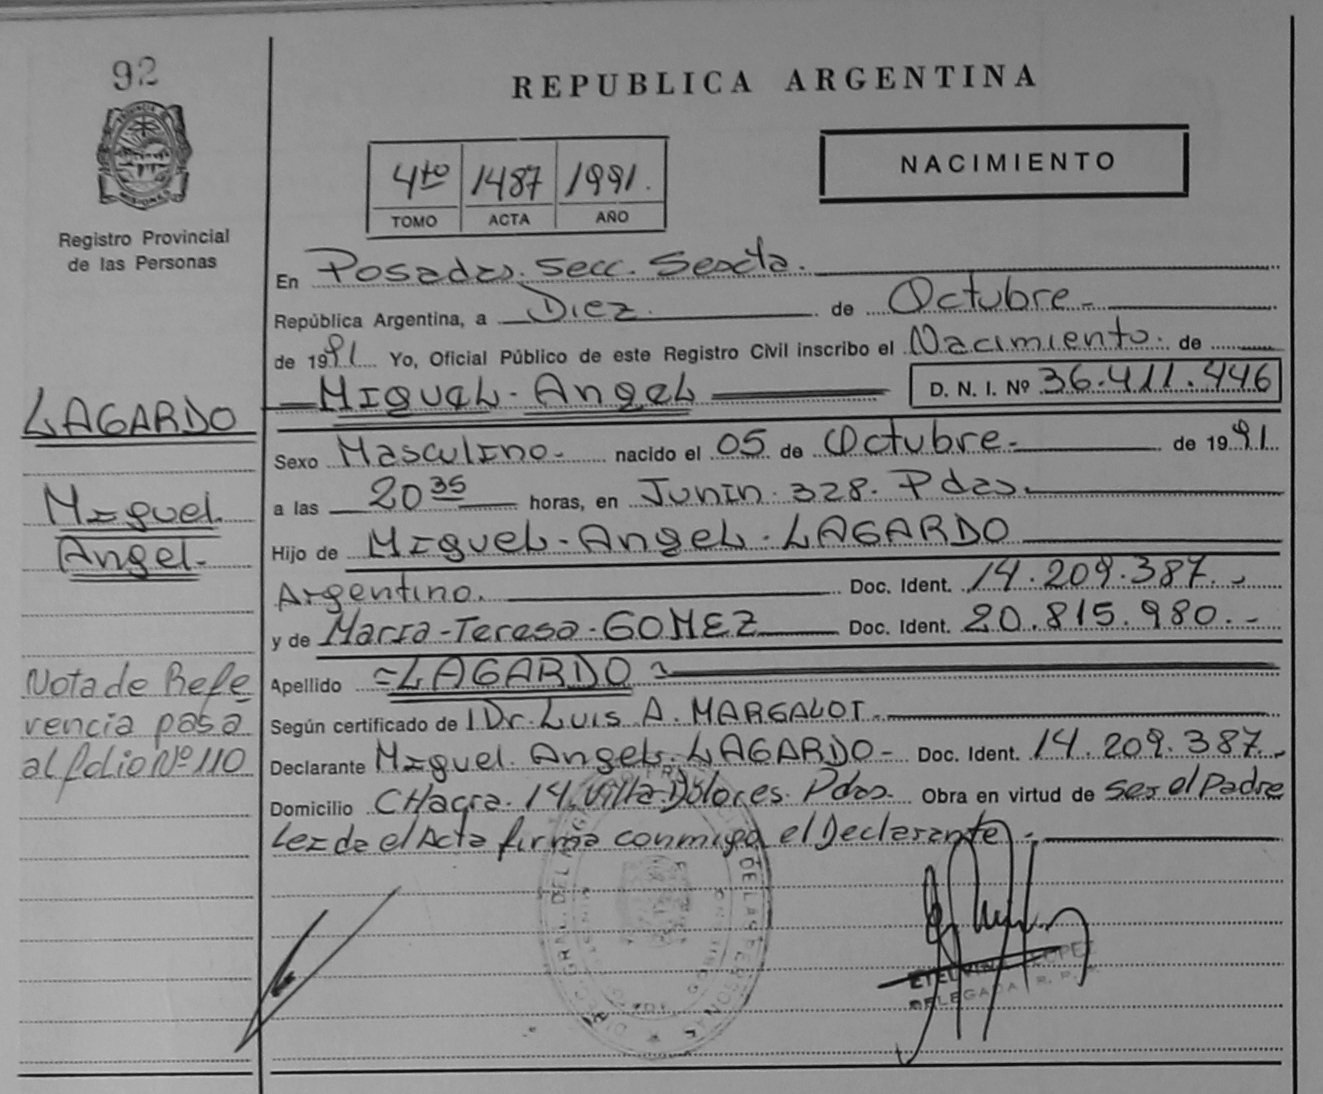 92
REPUBLICA ARGENTINA
4to 1487 1991.
TOMO ACTA AÑO
NACIMIENTO
MISIONES
Registro Provincial
de las Personas
En Posadas. Secc. Sexta.
República Argentina, a Diez. de Octubre-
de 1991 Yo, Oficial Público de este Registro Civil inscribo el Nacimiento. de
MIGUEL-ANGEL D. N. I. Nº 36.411.446
LAGARDO
Miguel
Angel-
Sexo Masculino- nacido el 05 de Octubre- de 1991.
a las 20 35 horas, en Junin. 328. Pdas.
Hijo de MIGUEL-ANGEL. LAGARDO
Argentino. Doc. Ident. 14.209.387.-
y de Maria-Teresa-GOMEZ Doc. Ident. 20.815.980.-
Apellido =LAGARDO
Según certificado de Dr. LUIS A. MARGALOT.
Declarante Miguel. Angel. LAGARDO- Doc. Ident. 14.209.387.-
Domicilio CHacra. 14. Villa Dolores. Pdas. Obra en virtud de ser el Padre
Leida el Acta firma conmigo el Declarante.-
Nota de Refe
rencia pasa
al folio Nº 110
LOPEZ
DELEGADA